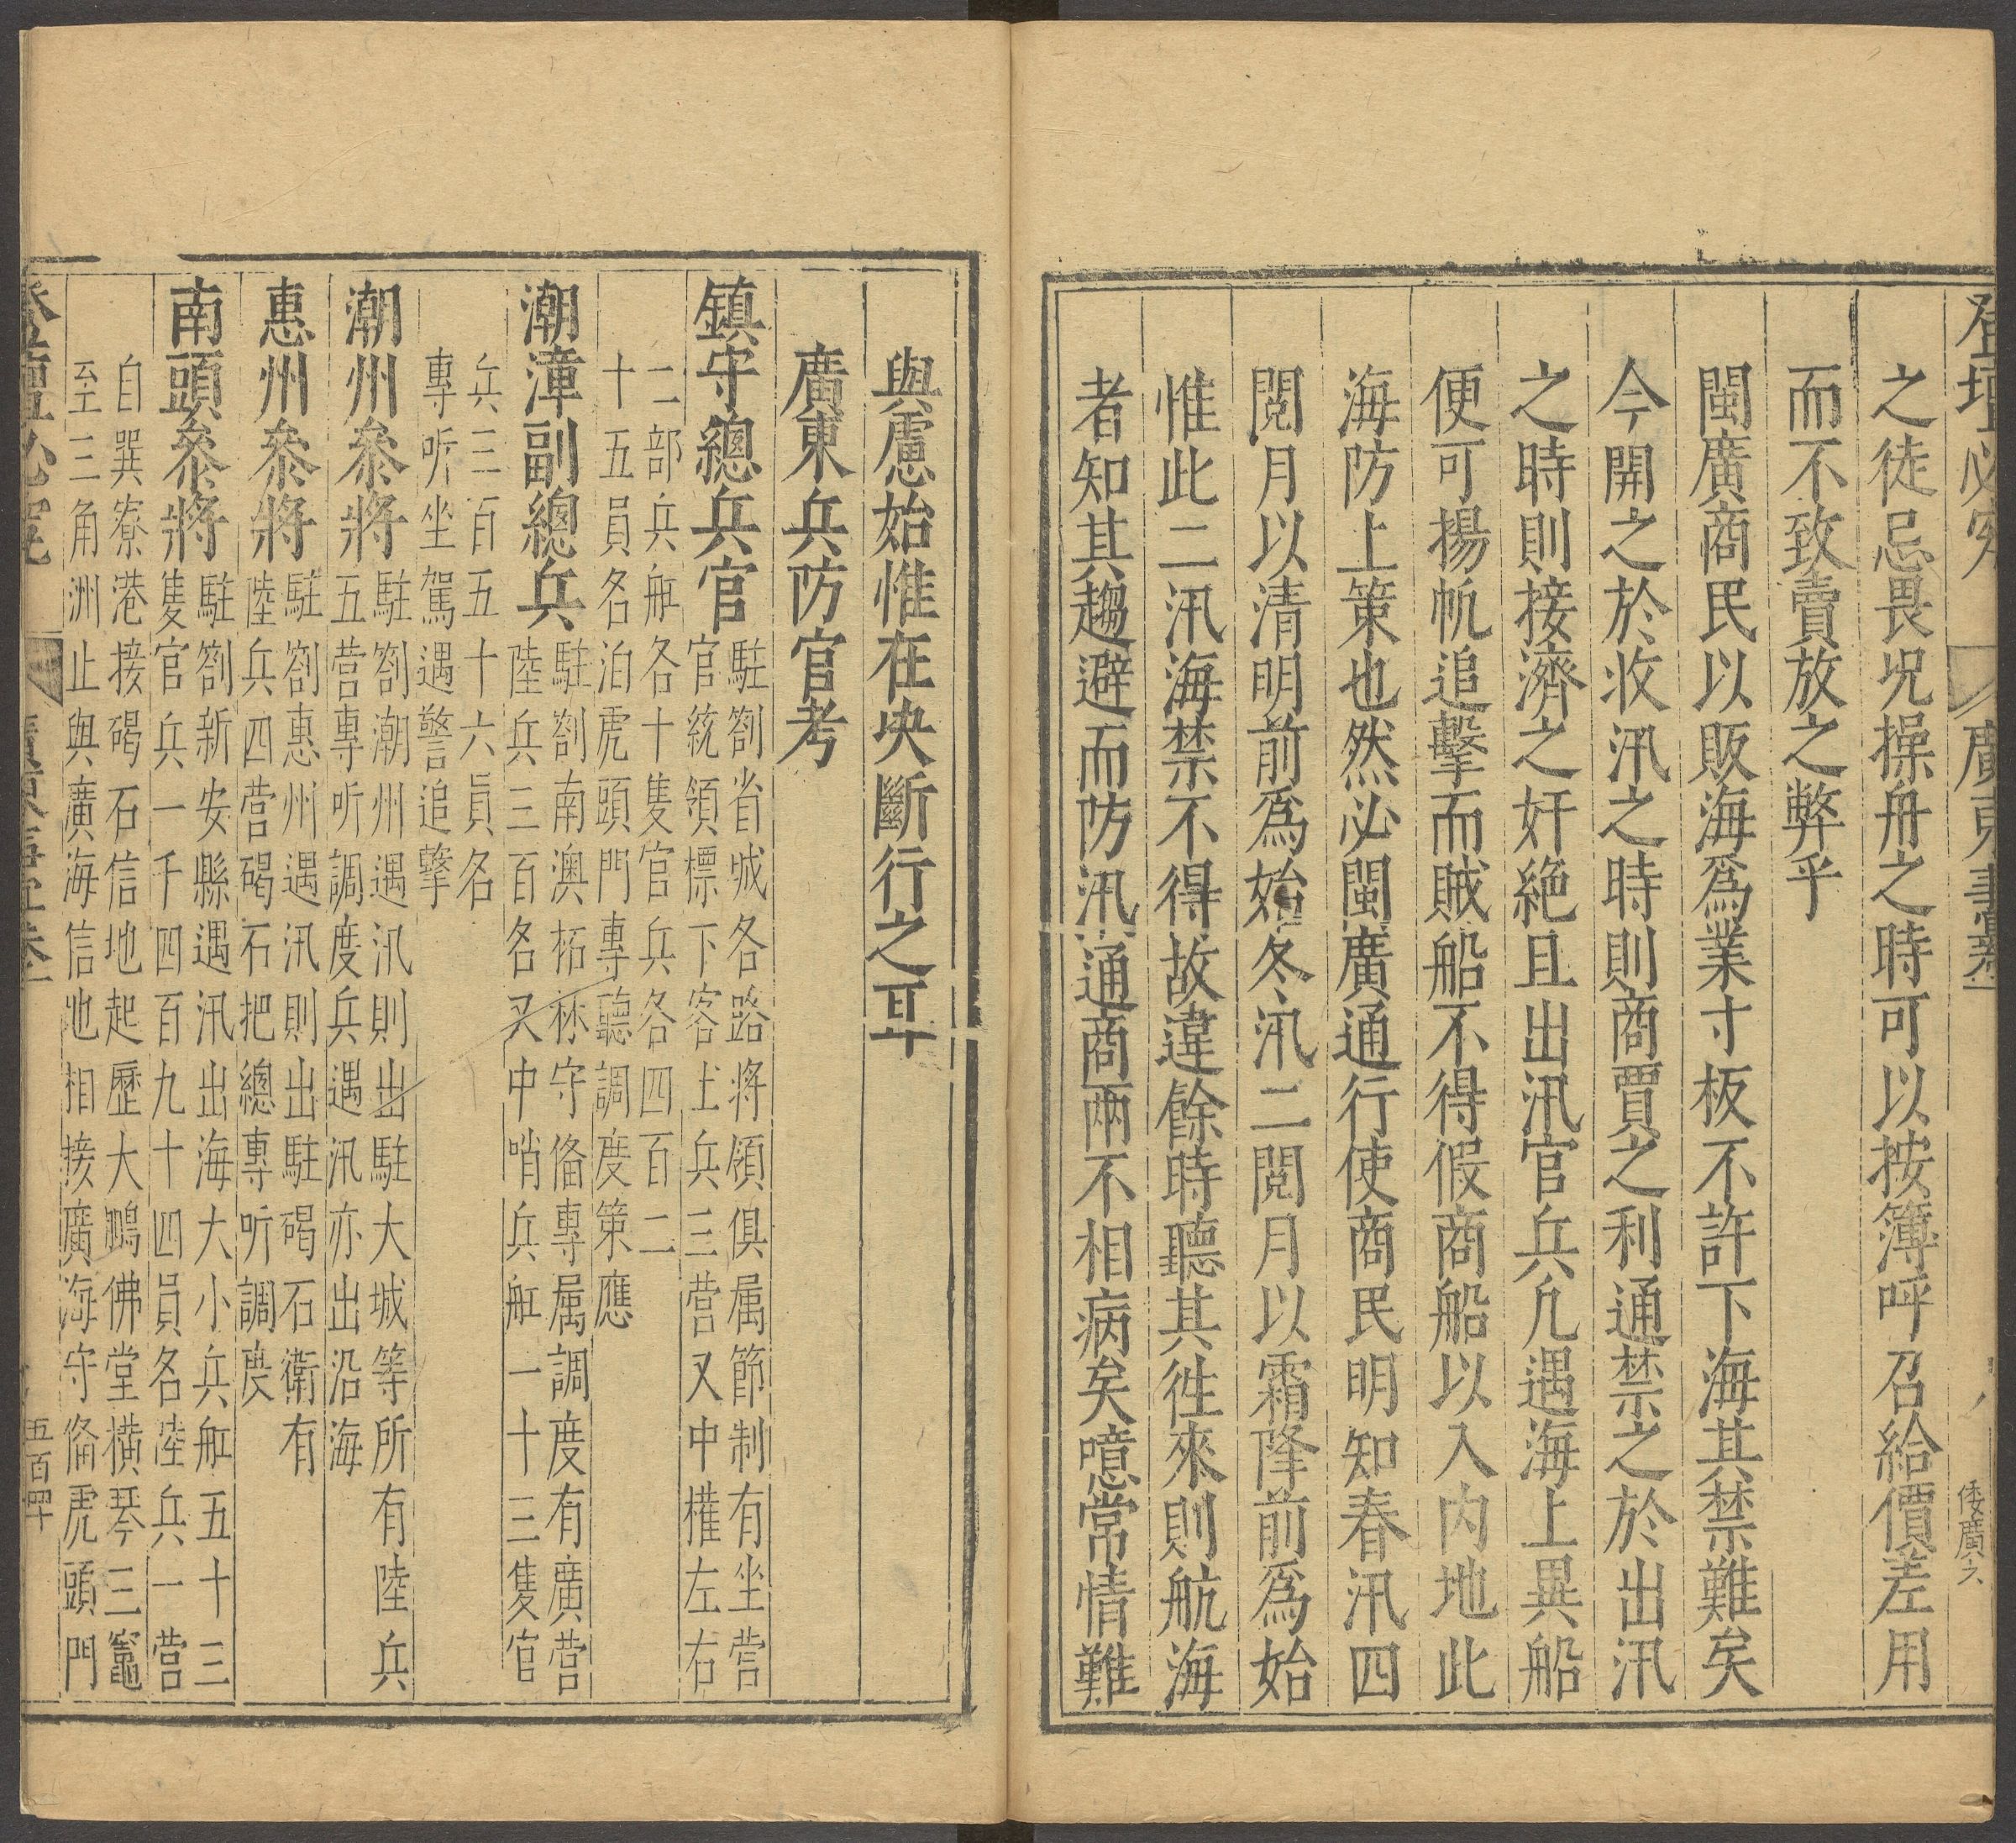 登壇必究
廣東事宜卷
倭廣六
之徒忌畏呪操舟之時可以按簿呼召給價差用
而不致賣放之弊乎
閩廣商民以販海爲業寸板不許下海其禁難矣
今開之於收汛之時則商賈之利通禁之於出汛
之時則接濟之奸絶且出汛官兵凢遇海上異船
便可揚帆追擊而賊船不得假商船以入内地此
海防上策也然必閩廣通行使商民明知春汛四
閱月以清明前爲始冬汛二閱月以霜降前爲始
惟此二汛海禁不得故違餘時聽其徃來則航海
者知其趨避而防汛通商兩不相病矣噫常情難
與慮始惟在决斷行之耳
廣東兵防官考
鎮守總兵官
駐劄省城各路將領俱属節制有坐営
官統領標下客土兵三営又中權左右
二部兵舡各十隻官兵各四百二
十五員名泊虎頭門專聽調度策應
潮漳副總兵
駐劄南澳柘林守俻專属調度有廣営
陸兵三百名又中哨兵舡一十三隻官
兵三百五十六員名
專听坐駕遇警追擊
潮州叅將
駐劄潮州遇汛則出駐大城等所有陸兵
五営專听調度兵遇汛亦出沿海
惠州叅將
駐劄惠州遇汛則出駐碣石衛有
陸兵四営碣石把總專听調度
南頭叅將
駐劄新安縣遇汛出海大小兵舡五十三
隻官兵一千四百九十四員名陸兵一営
自巽寮港接碣石信地起歷大鵬佛堂橫琴三竈
至三角洲止與廣海信地相接廣海守俻虎頭門
登壇必究
廣東事宜卷
五百四十